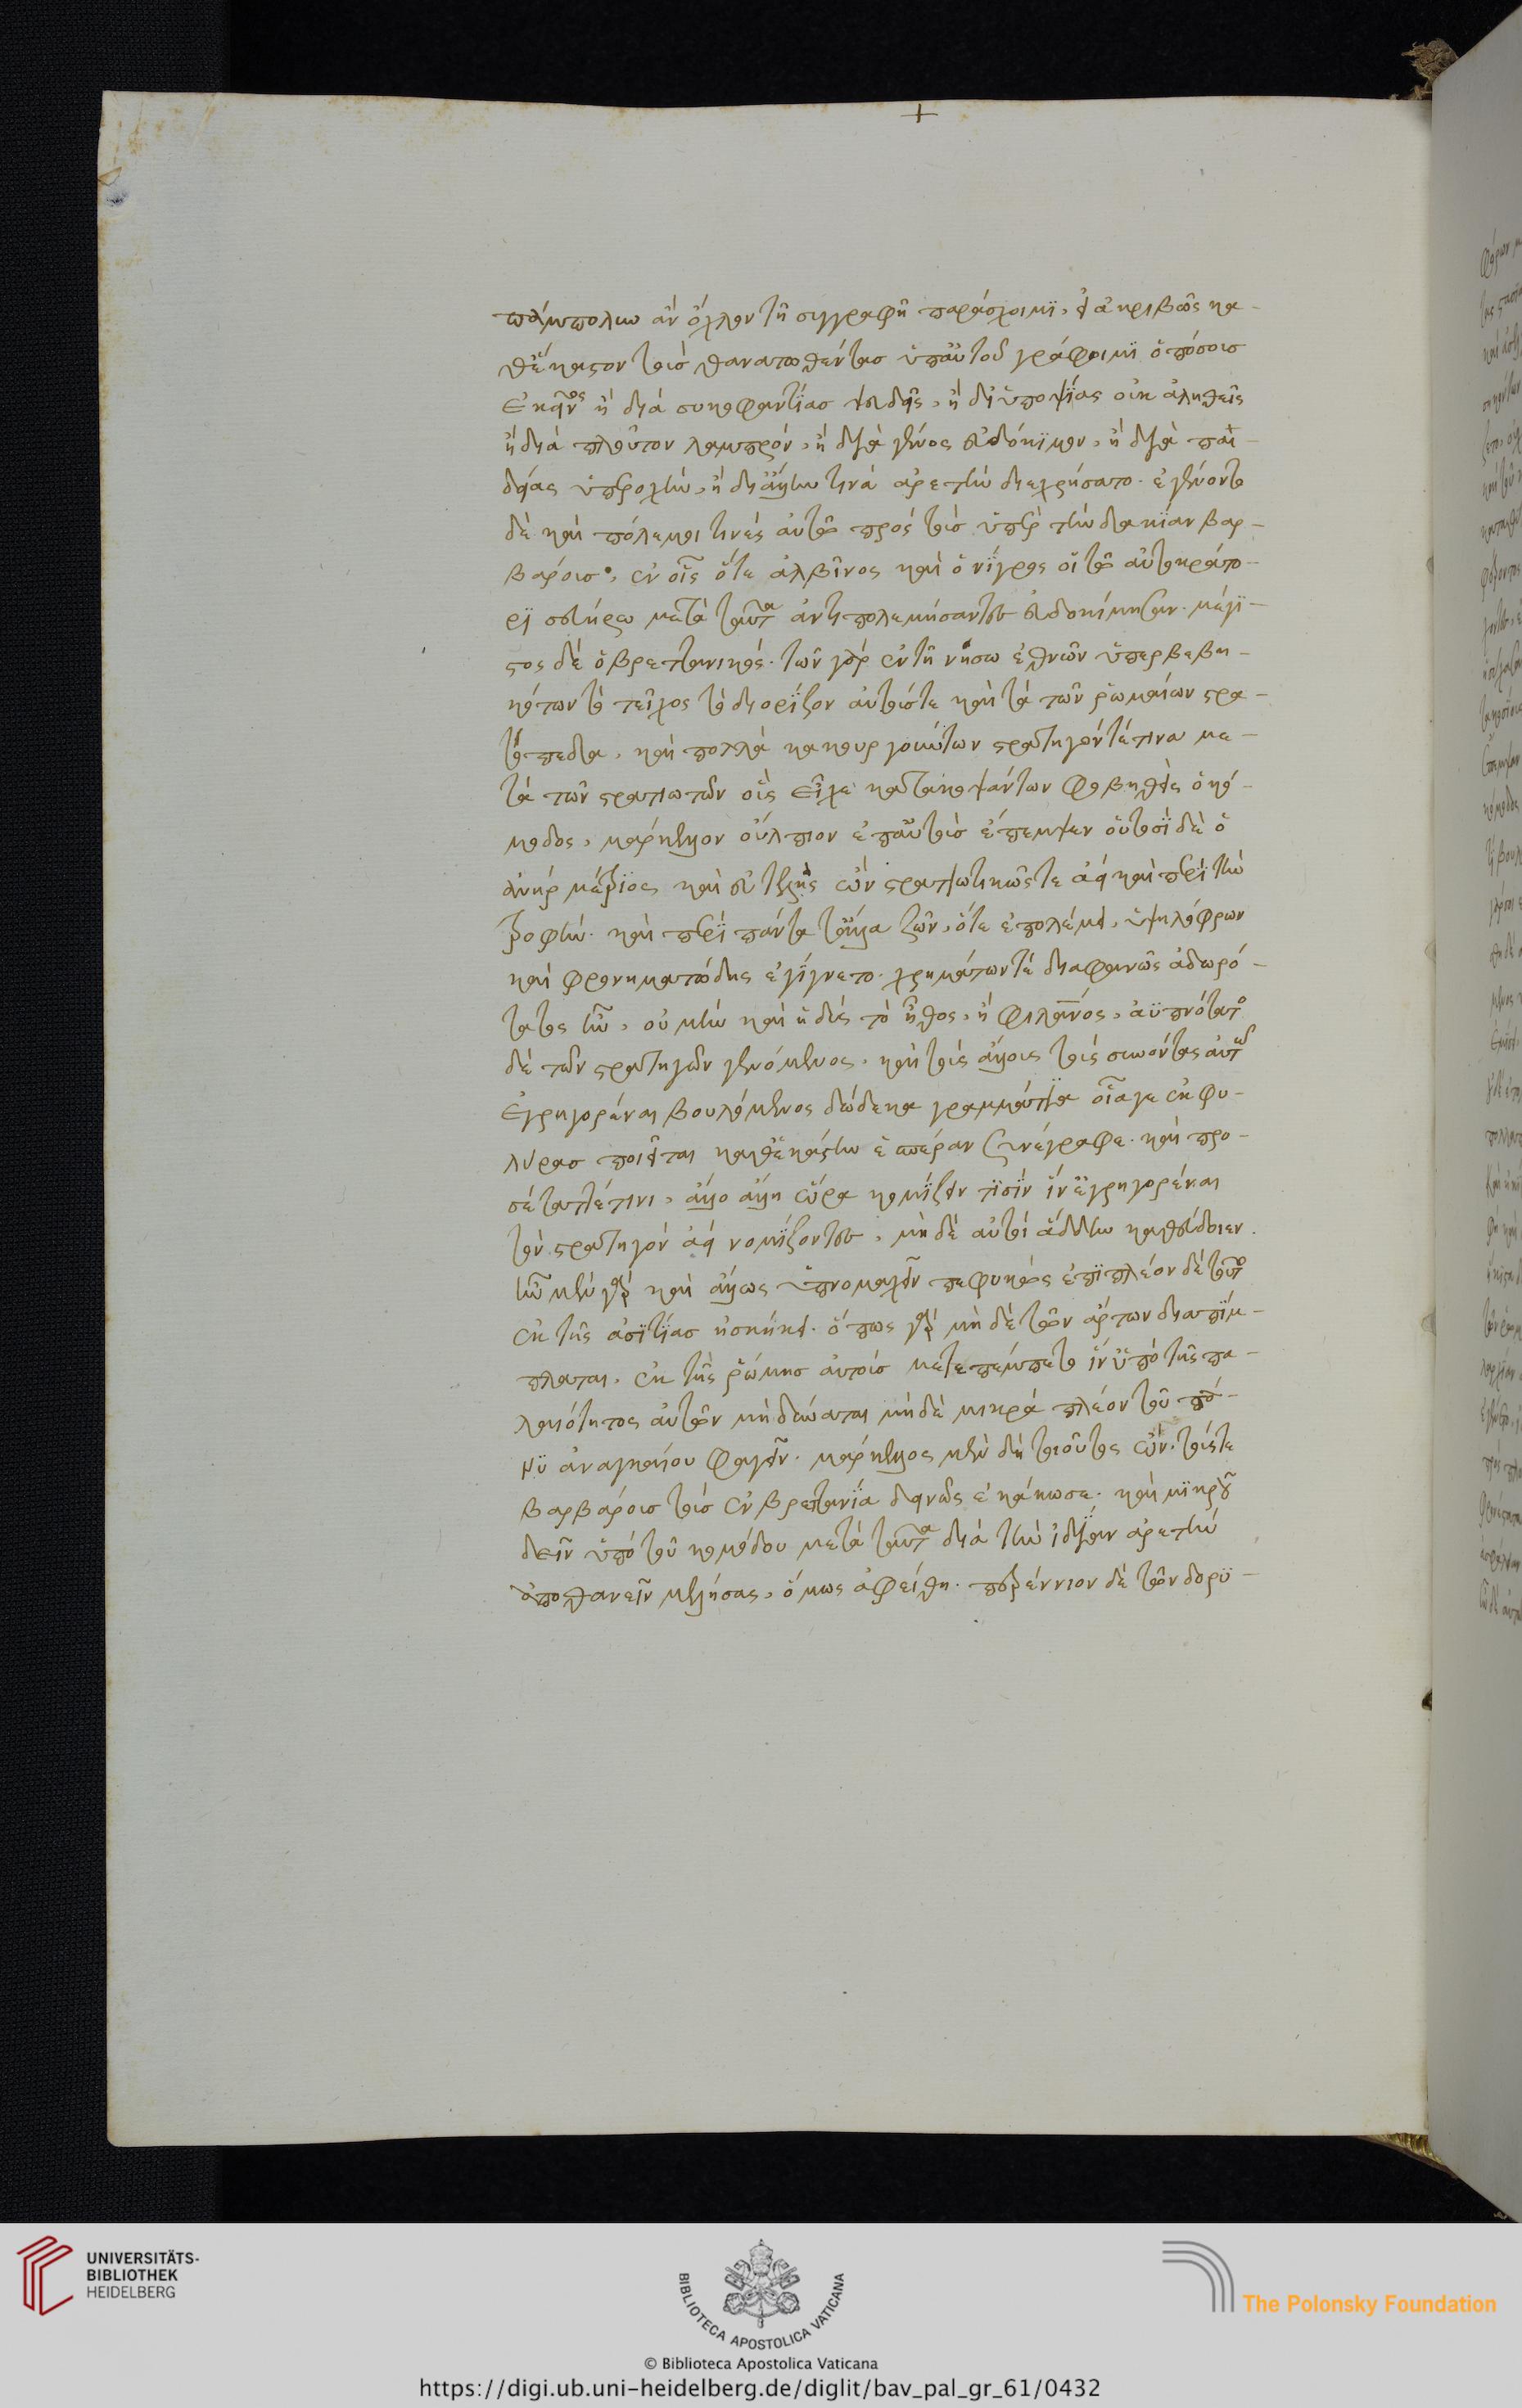 πάμπολυν ἂν ὄχλον τῇ συγγραφῇ παράσχοιμϊ, εἰ ἀκριβῶς κα-
θἕκαστον τοὺς θανατωθέντας ὑπαὐτοῦ γράφοιμϊ ὁπόσους
ἐκεῖνος ἢ διὰ συκοφαντΐας ψευδεῖς, ἢ δι ὑποψΐας οὐκ ἀληθεῖς
ἢ διὰ πλοῦτον λαμπρόν, ἢ διὰ γένος εὐδόκϊμον, ἢ διὰ παι-
δείας ὑπεροχὴν, ἢ διἄλλην τινὰ ἀρετὴν διεχρήσατο. ἐγένοντο
δὲ καὶ πόλεμοι τινὲς αὐτῷ πρὸς τοὺς ὑπὲρ τὴν δακΐαν βαρ-
βάρους, ἐν οἷς ὅτε ἀλβῖνος καὶ ὁ νΐγρος οἱ τῷ αὐτοκράτο-
ρϊ σευήρω μετὰ ταῦτα ἀντιπολεμήσαντες εὐδοκίμησαν. μέγι-
στος δὲ ὁ βρεττανικός. τῶν γὰρ ἐν τῇ νήσω ἐθνῶν ὑπερβεβη-
κότων τὸ τεῖχος τὸ διορΐζον αὐτούστε καὶ τὰ τῶν ῥωμαίων στρα-
τόπεδα, καὶ πολλὰ κακουργούντων στρατηγόντέτινα με-
τὰ τῶν στρατιωτῶν οὓς εἶχε κατακοψάντων φοβηθεὶς ὁ κό-
μοδος, μάρκελλον οὔλπιον ἐπαὐτοὺς ἔπεμψεν οὑτοσϊ δὲ ὁ
ἀνὴρ μέτριος καὶ εὐτελὴς ὢν στρατιωτικῶςτε ἀεὶ καὶ περὶ τὴν
τροφὴν. καὶ περϊ πάντα τἄλλα ζῶν, ὅτε ἐπολέμει, ὑψηλόφρων
καὶ φρονηματώδης ἐγΐγνετο. χρημάτωντέ διαφανῶς ἀδωρό-
τατος ἦν, οὐ μὴν καὶ ἡδὺς τὸ ἦθος, ἢ φιλάνθρωπος, ἀϋπνότατος
δὲ τῶν στρατηγῶν γενόμενος, καὶ τοὺς ἄλλους τοὺς συνόντας αὐτῷ
ἐγρηγορέναι βουλόμενος δώδεκα γραμματεῖα οἷαγε ἐκ φι-
λύρας ποιεῖται καθἑκάστην ἑσπέραν συνέγραφε. καὶ προ-
σέταττέτινι, ἄλλο ἄλλη ὥρα κομΐζειν τισΐν ἵνἐγρηγορέναι
τὸν στρατηγὸν ἀεὶ νομΐζοντες, μηδὲ αὐτοὶ ἄδδην καθεύδοιεν.
ἦν μὲν γὰρ καὶ ἄλλως ὑπνομαχεῖν πεφυκὸς ἐπϊπλέον δὲ τοῦτο
ἐκ τῆς ἀσϊτΐας ἠσκήκει. ὅπως γὰρ μηδὲ τῶν ἄρτων διαπΐμ-
πλαται, ἐκ τῆς ῥώμης αὐτοὺς μετεπέμπετο ἵνὑπὸ τῆς πα-
λαιότητος αὐτῶν μὴ δύναται μηδὲ μικρὰ πλέον τοῦ πά-
νϋ ἀναγκαίου φαγεῖν. μάρκελλος μὲν δὴ τοιοῦτος ὢν. τούςτε
βαρβάρους τοὺς ἐν βρεττανΐα δεινῶς ἐκάκωσε. καὶ μϊκροῦ
δεῖν ὑπὸ τοῦ κομόδου μετὰ ταῦτα διὰ τὴν ἰδΐαν ἀρετὴν
ἀποθανεῖν μελλήσας, ὅμως ἀφείθη. περέννιον δὲ τῶν δορϋ-
UNIVERSITÄTS-
BIBLIOTHEK
HEIDELBERG
BIBLIOTECA APOSTOLICA VATICANA
The Polonsky Foundation
© Biblioteca Apostolica Vaticana
https://digi.ub.uni-heidelberg.de/diglit/bav_pal_gr_61/0432